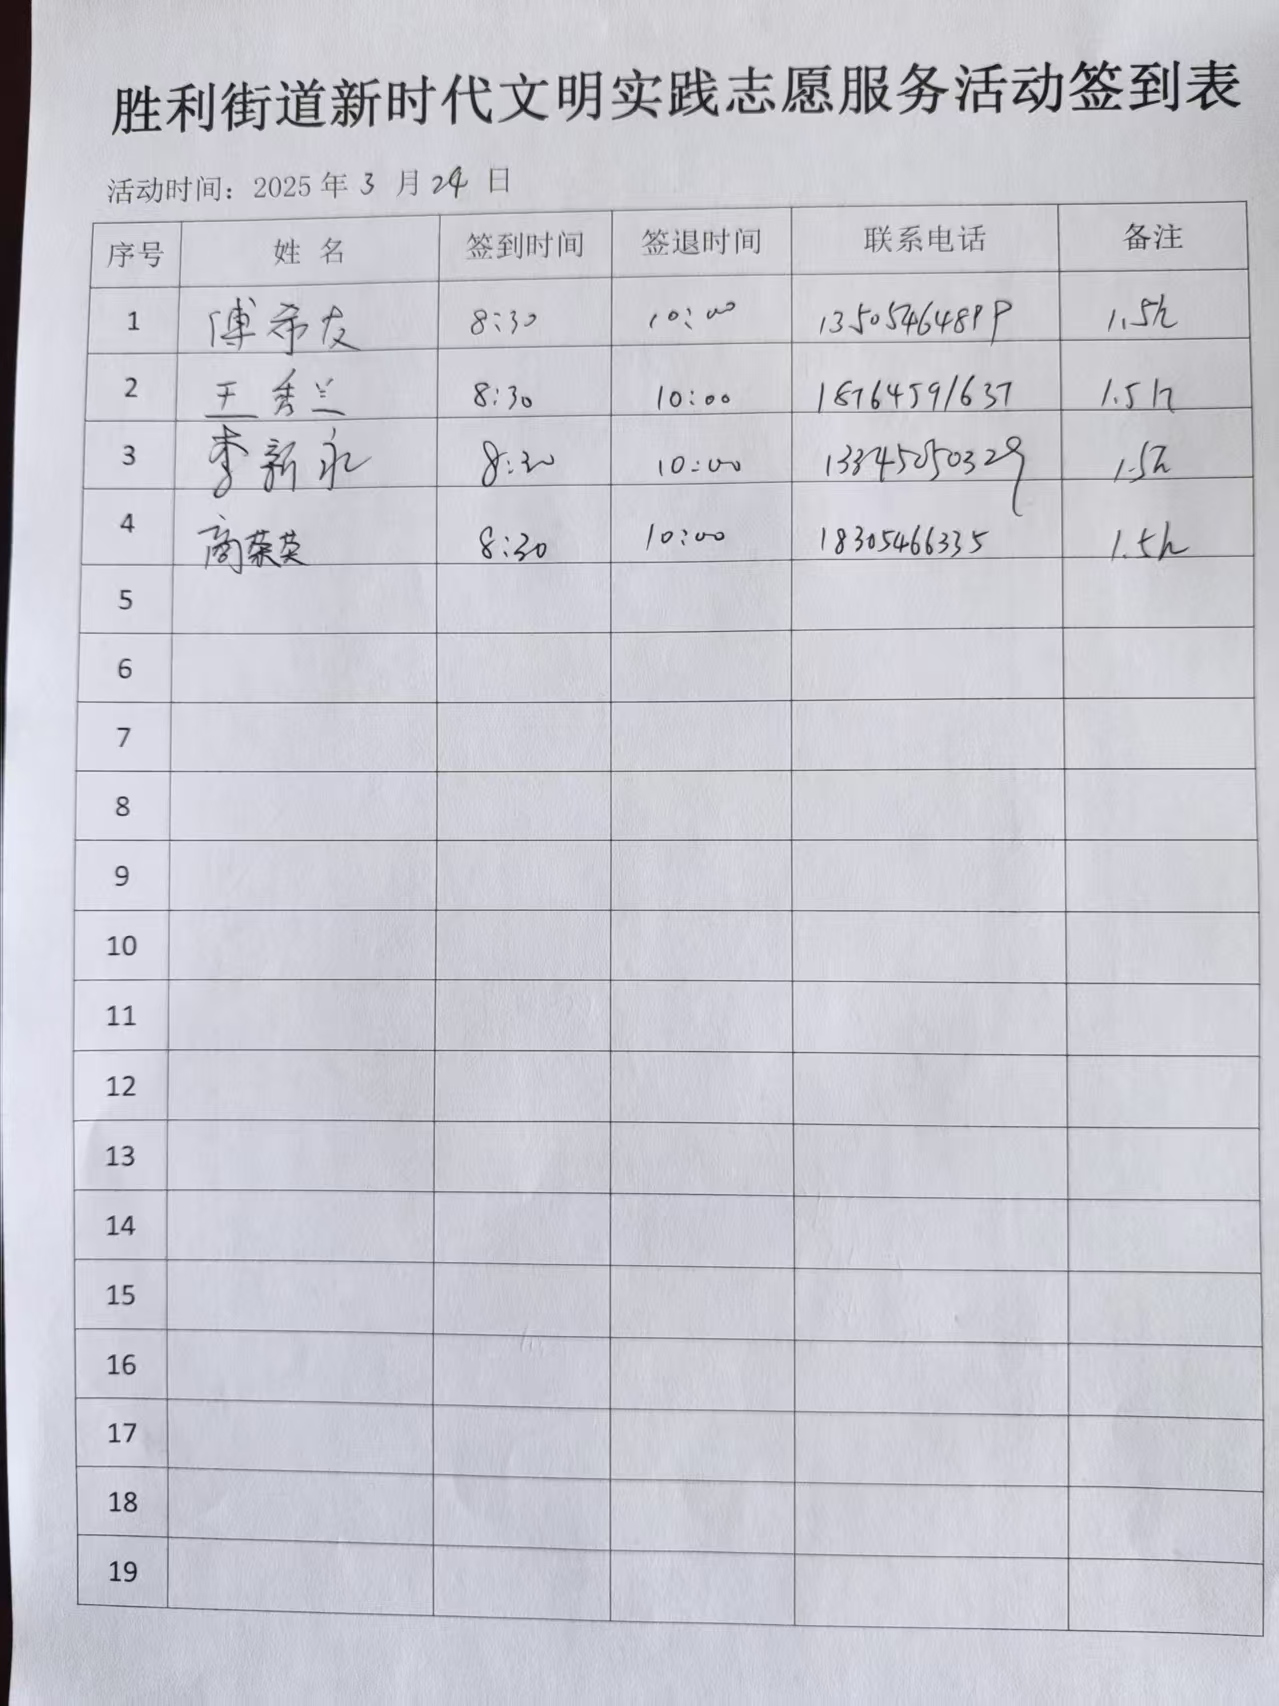 胜利街道新时代文明实践志愿服务活动签到表
活动时间：2025 年 3 月 24 日
序号 姓 名 签到时间 签退时间 联系电话 备注
1 傅希友 8:30 10:00 13505464899 1.5h
2 王秀兰 8:30 10:00 18764591637 1.5h
3 李新永 8:30 10:00 13345050329 1.5h
4 商荣英 8:30 10:00 18305466335 1.5h
5
6
7
8
9
10
11
12
13
14
15
16
17
18
19